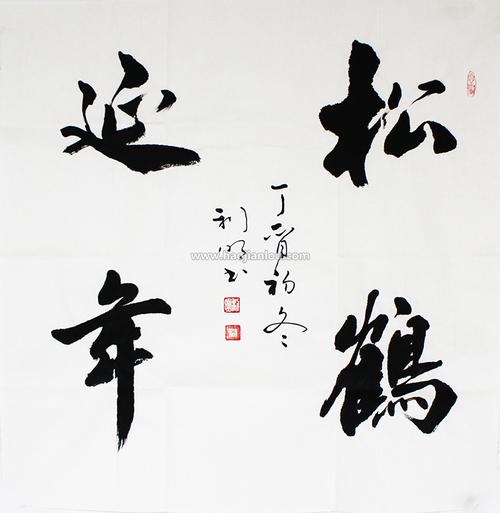 松鶴
延年
丁酉初冬
利明书
www.haojianlou.com